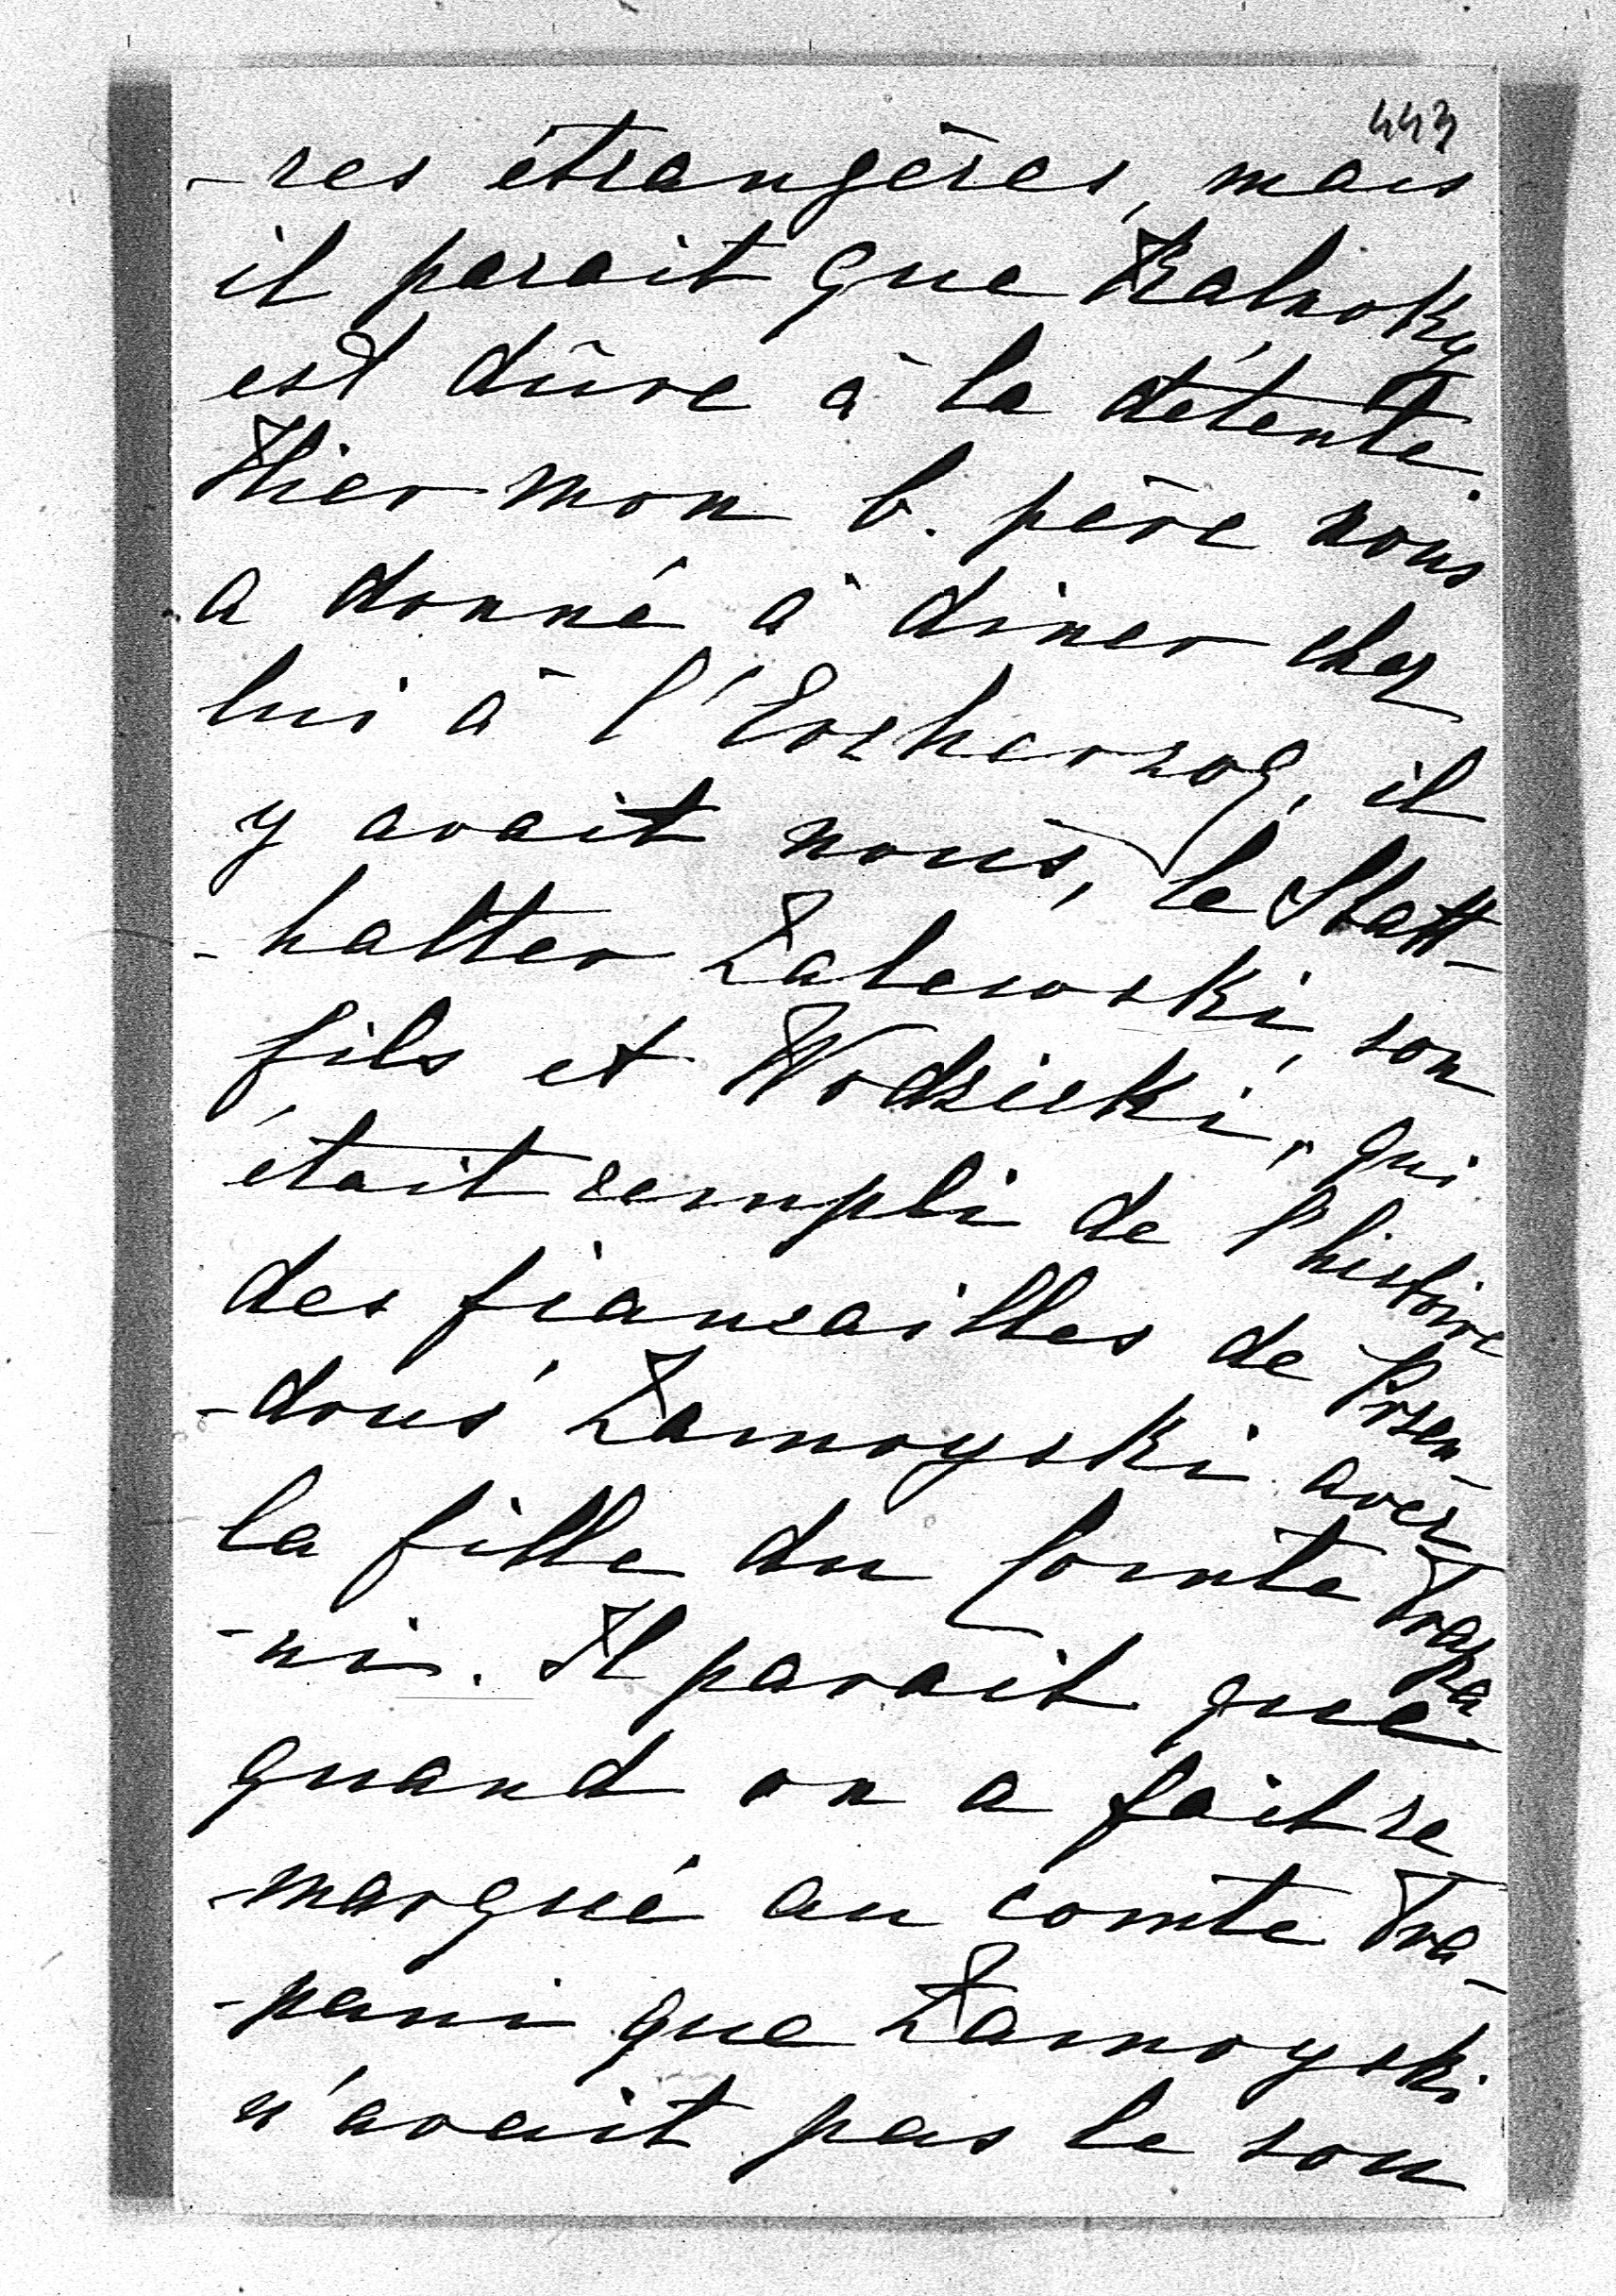 443
-res étrangères, mais
il parait que Kalnoky
est dûre à la détente.
Hier mon b. père nous
a donné à diner chez
lui à l'Erzherzog, il
y avait nous, le Statt-
-halter Zalewski, son
fils et Wodzicki, qui
était rempli de l'histoire
des fiançailles de
Zamoyski avec
la fille du Comte Trapa
-ni. Il parait que
quand on a fait re
-marqué au comte Tra-
-pani que Zamoyski
n'avait pas le sou